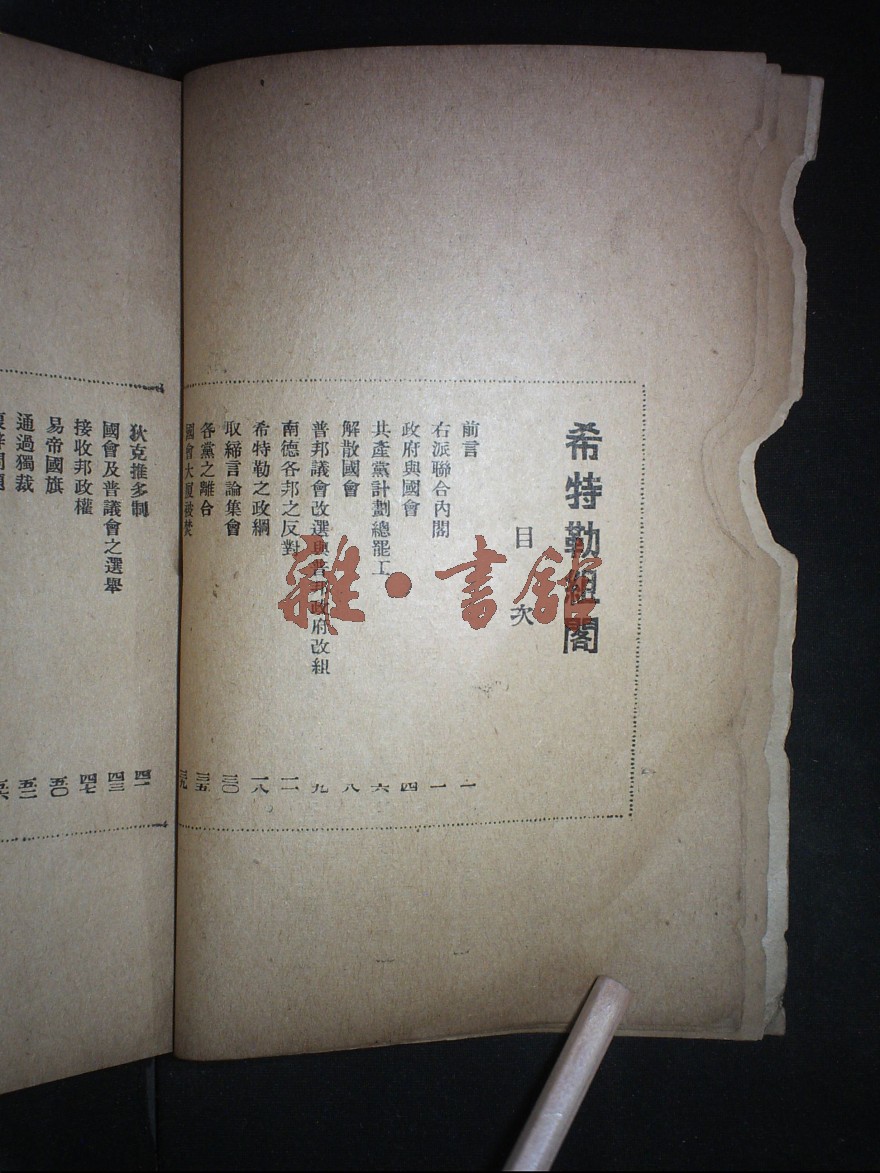 希特勒組閣
目次
前言 一
右派聯合內閣 一
政府與國會 四
共產黨計劃總罷工 六
解散國會 八
普邦議會改選與普邦政府改組 九
南德各邦之反對 一一
希特勒之政綱 一八
取締言論集會 三〇
各黨之離合 三五
國會大厦被焚 三九
狄克推多制 四一
國會及普議會之選舉 四三
接收邦政權 四七
易帝國旗 五〇
通過獨裁 五二
雜·書館